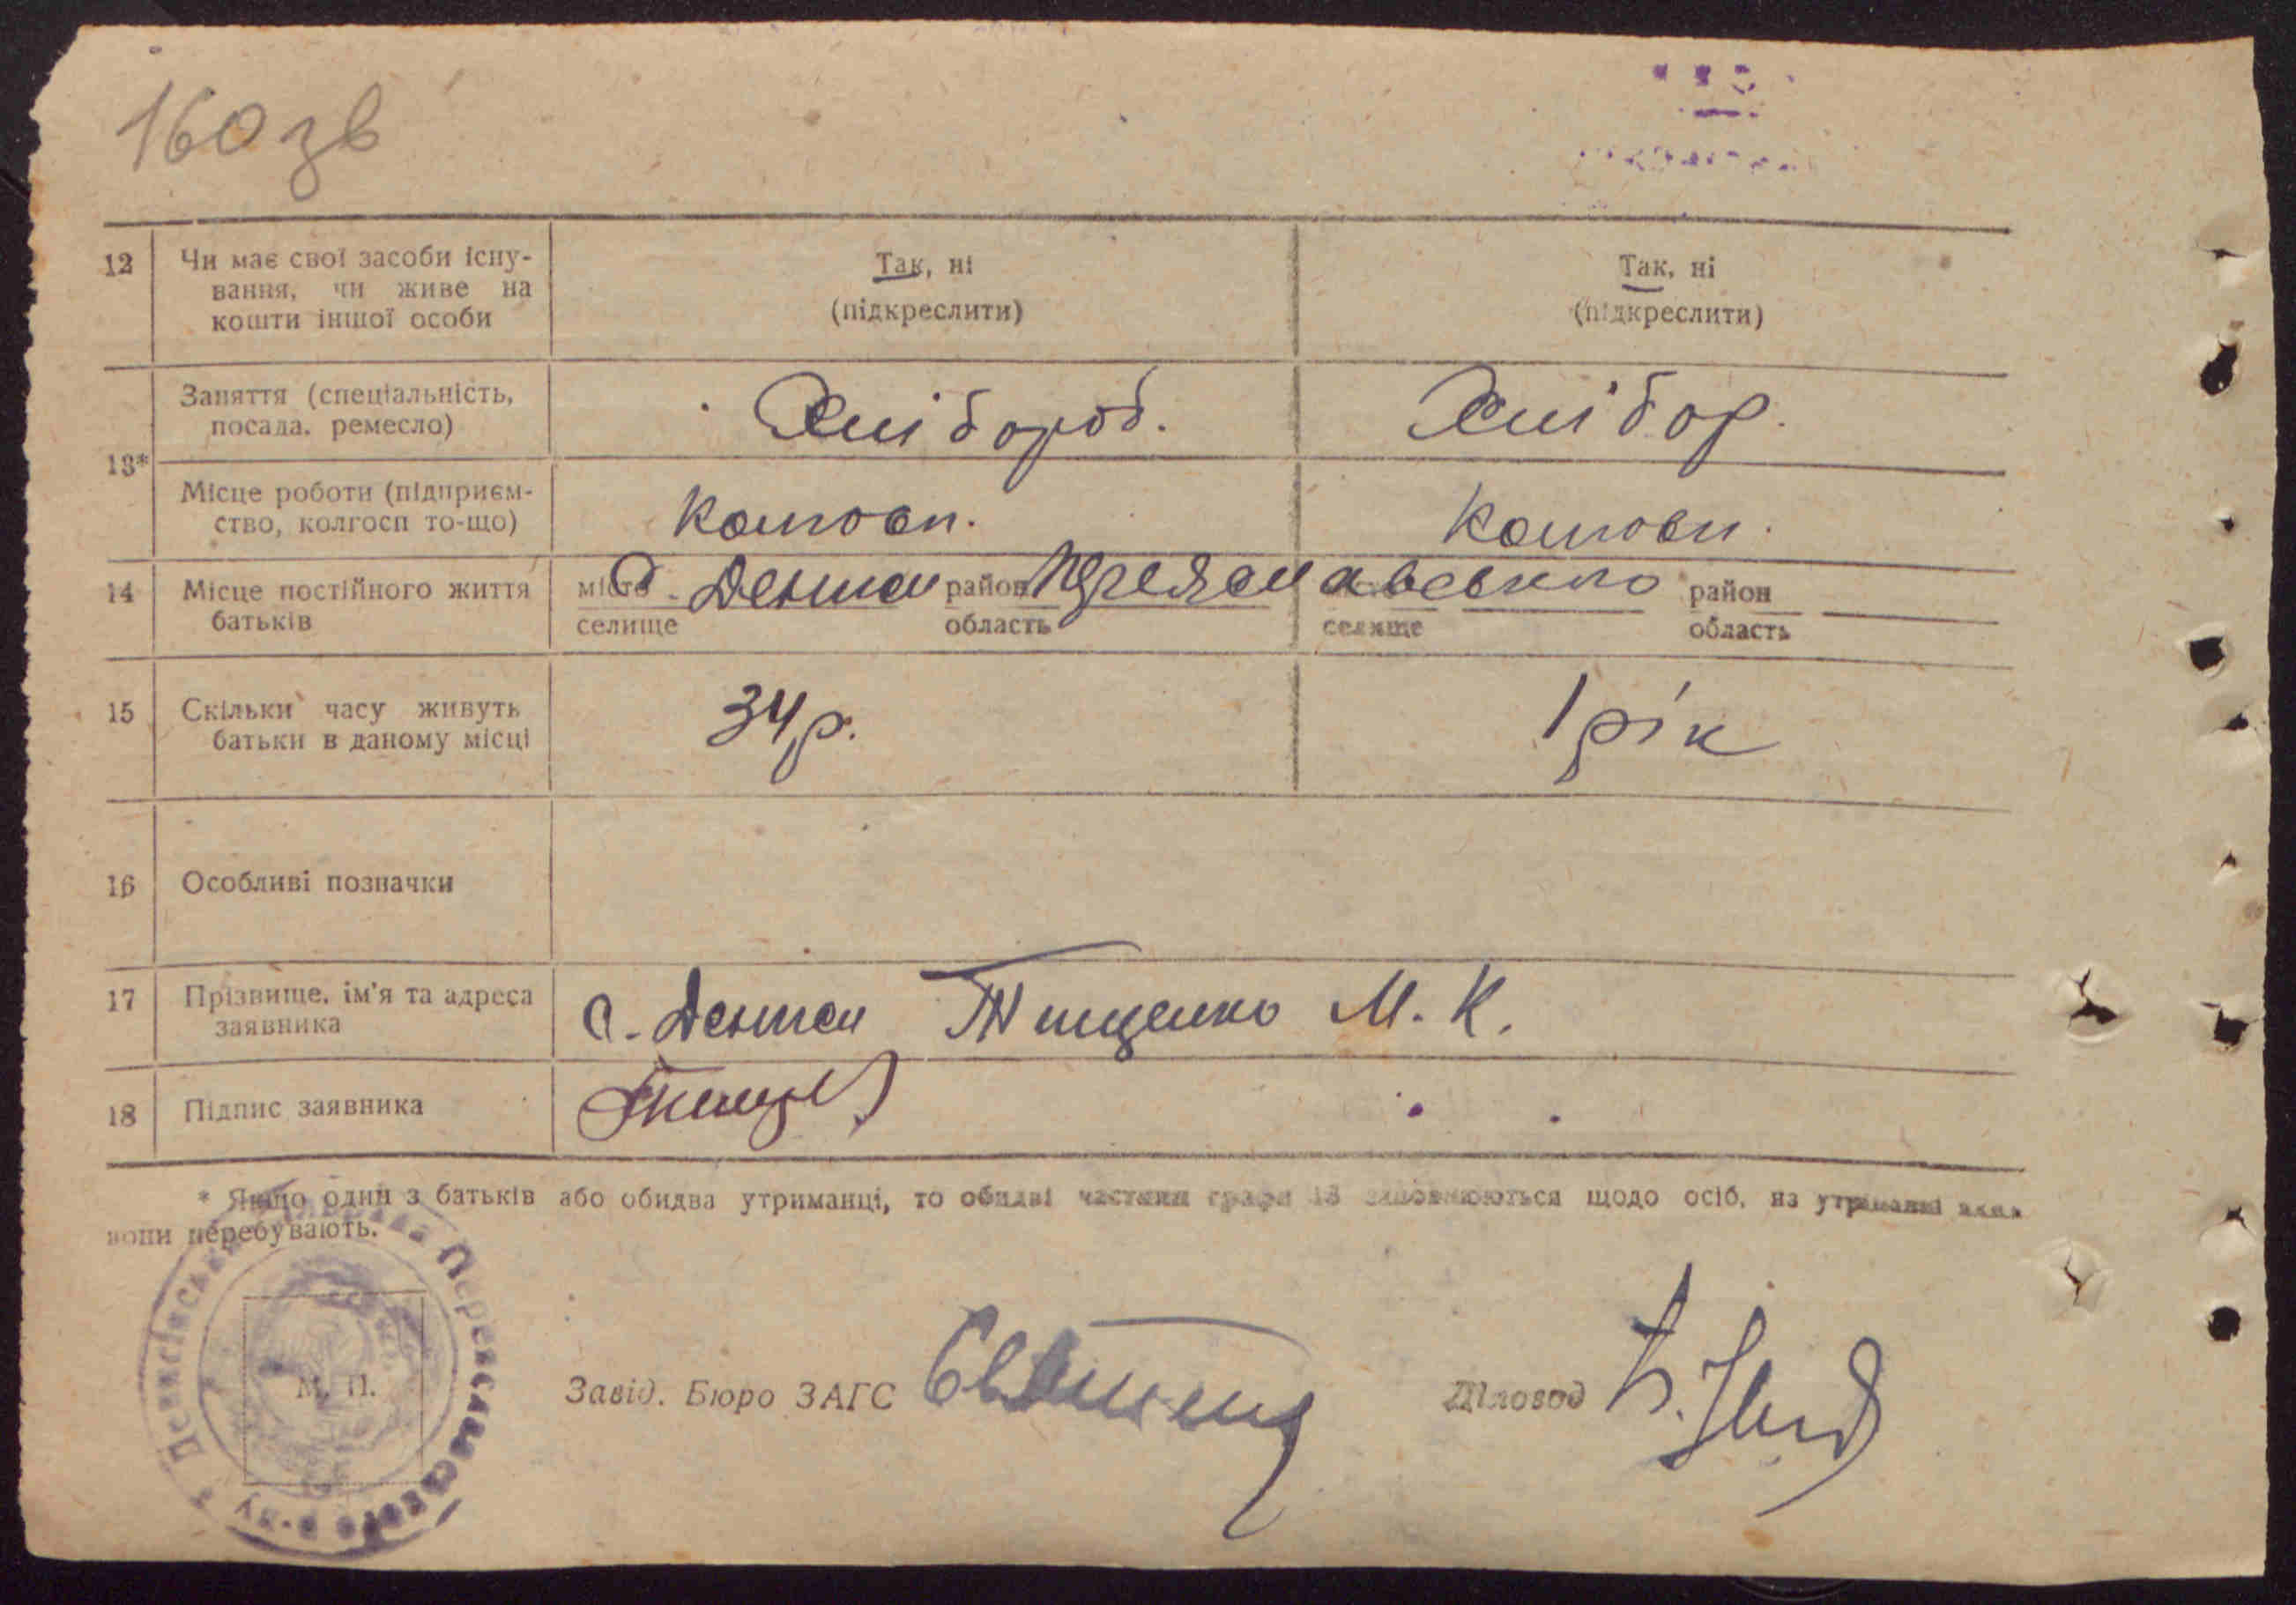 160 зв
12 Чи має свої засоби існу-
вання, чи живе на
кошти іншої особи
Так, ні
(підкреслити)
Так, ні
(підкреслити)
13*
Заняття (спеціальність,
посада, ремесло)
Хлібороб.
Хлібор.
Місце роботи (підприєм-
ство, колгосп то-що)
Колгосп.
Колгосп.
14 Місце постійного життя
батьків
місто с. Деньги район Переяславського район
селище область селище область
15 Скільки часу живуть
батьки в даному місці
34 р.
1 рік
16 Особливі позначки
17 Прізвище, ім'я та адреса
заявника
с. Тищенко М. К.
18 Підпис заявника
* Якщо один з батьків або обидва утриманці, то обидві частини графи 13 заповнюються щодо осіб, на утриманні яких
вони перебувають.
М. П.
Переяславського р-ну
Завід. Бюро ЗАГС
Діловод